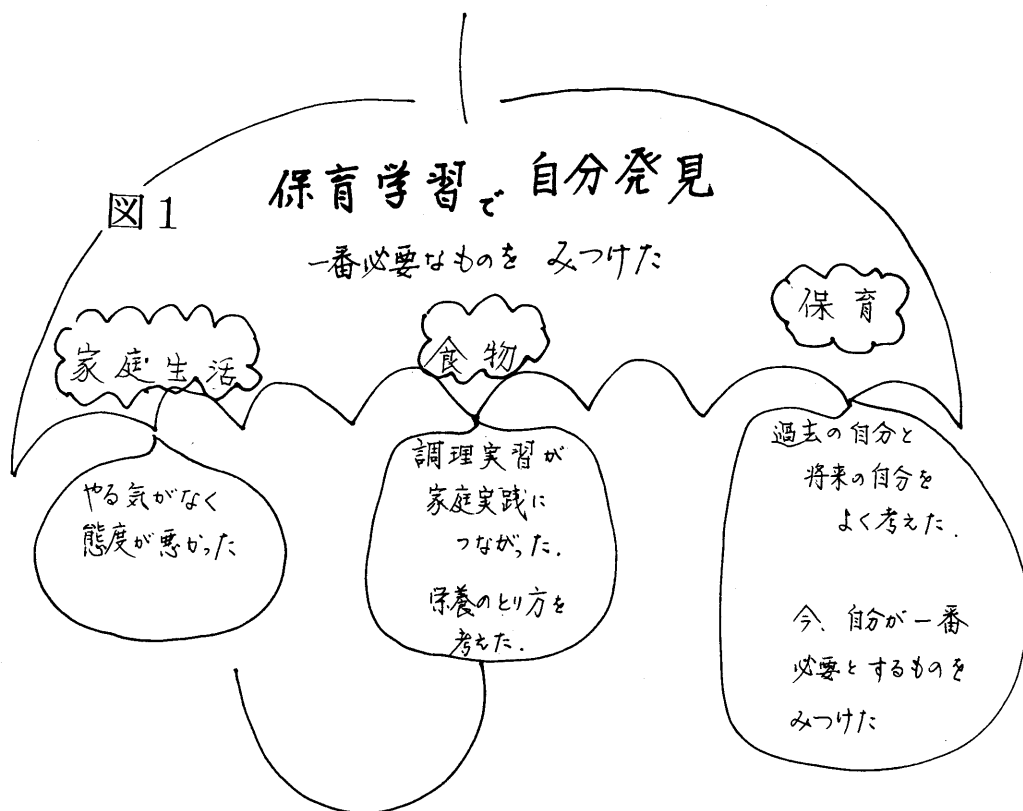 図1
保育学習で自分発見
一番必要なものを みつけた
家庭生活
食物
保育
やる気がなく
態度が悪かった
調理実習が
家庭実践に
つながった.
栄養のとり方を
考えた.
過去の自分と
将来の自分を
よく考えた.
今、自分が一番
必要とするものを
みつけた